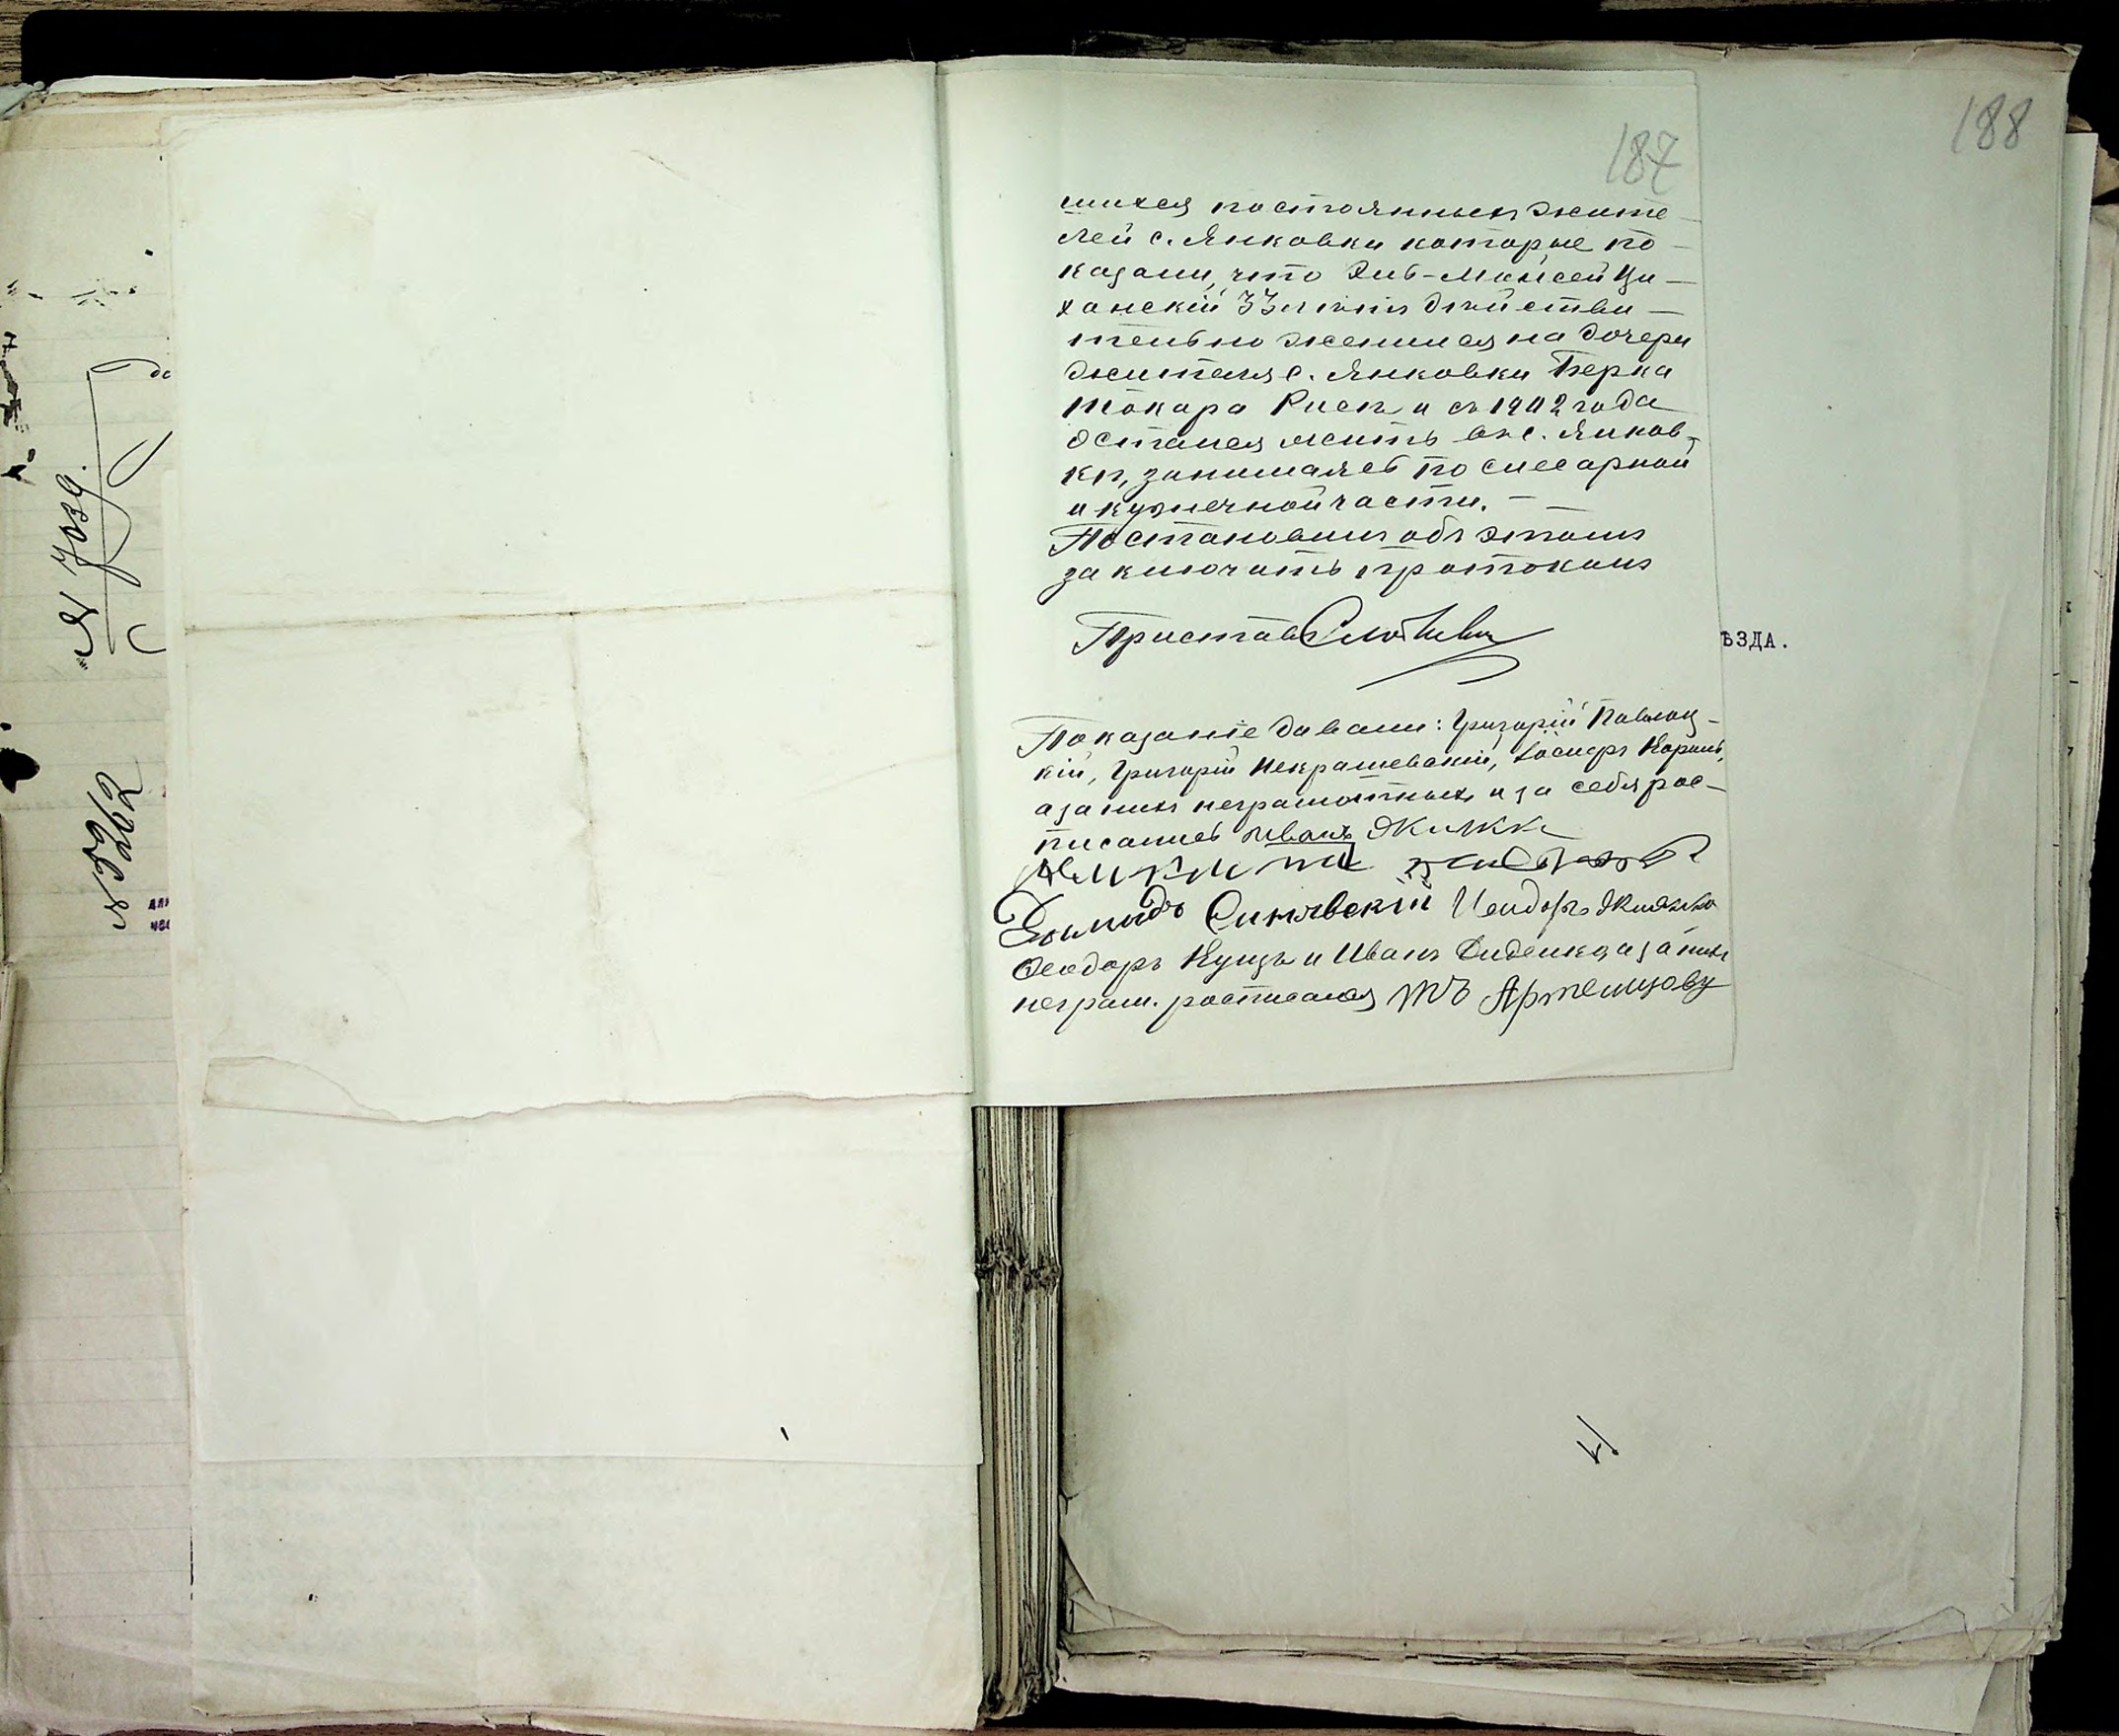 187
188
шихся постоянныхъ жите-
лей с. Янковки которые по-
казали, что Лив-Мойсей Ци-
ханскій 33 лѣтъ дѣйстви-
тельно женился на дочери
жителя с. Янковки Берка
Токаря Рисѣ и съ 1902 года
остался жить въ с. Янков-
кѣ, занимаясь по слесарной
и кузнечной части. —
Постановилъ объ этомъ
заключить протоколъ
Приставъ
Показаніе давали: Григорій Павлоц-
кій, Григорій Некрашевскій, Іосифъ Король,
а за нихъ неграмотныхъ и за себя рос-
писался Иванъ
Никита
Демидъ Синявскій
Феодоръ Куцъ и Иванъ Диденко, а за нихъ
неграм. росписался
ѢЗДА.
№ 5262